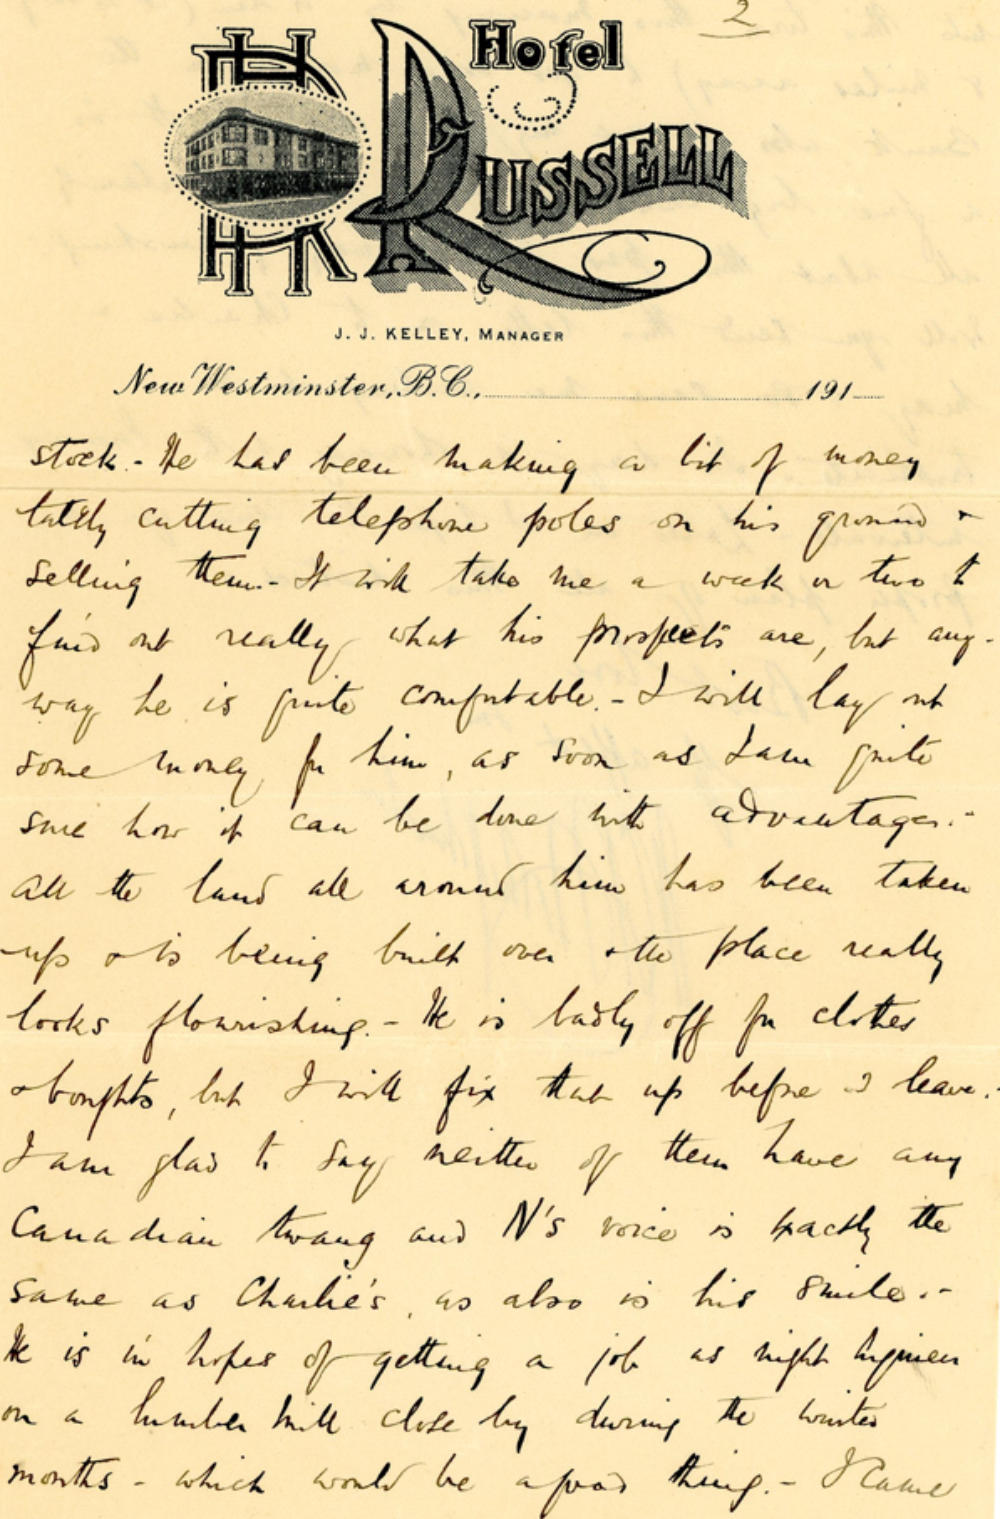 2
Hotel
RUSSELL
HR
J. J. KELLEY, MANAGER
New Westminster, B.C., 191
stock. - He has been making a bit of money
lately cutting telephone poles on his ground &
selling them. - It will take me a week or two to
find out really what his prospects are, but any-
way he is quite comfortable. - I will lay out
some money for him, as soon as I am quite
sure how it can be done with advantage. -
All the land all around him has been taken
up & is being built over & the place really
looks flourishing. - He is badly off for clothes
& boughts, but I will fix that up before I leave. -
I am glad to say neither of them have any
Canadian twang and N's voice is exactly the
same as Charlie's, as also is his smile. -
He is in hopes of getting a job as night engineer
on a lumber mill close by during the winter
months - which would be a good thing. - I came